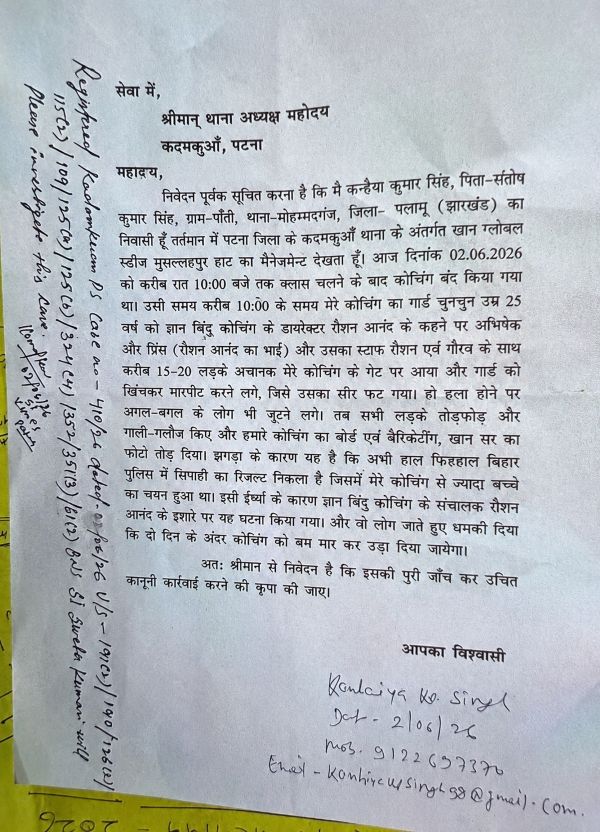 सेवा में,
श्रीमान् थाना अध्यक्ष महोदय
कदमकुआँ, पटना
महाद्रय,
निवेदन पूर्वक सूचित करना है कि मै कन्हैया कुमार सिंह, पिता-संतोष
कुमार सिंह, ग्राम-पाँती, थाना-मोहम्मदगंज, जिला- पलामू (झारखंड) का
निवासी हूँ तर्तमान में पटना जिला के कदमकुआँ थाना के अंतर्गत खान ग्लोबल
स्डीज मुसल्लहपुर हाट का मैनेजमेन्ट देखता हूँ। आज दिनांक 02.06.2026
को करीब रात 10:00 बजे तक क्लास चलने के बाद कोचिंग बंद किया गया
था। उसी समय करीब 10:00 के समय मेरे कोचिंग का गार्ड चुनचुन उम्र 25
वर्ष को ज्ञान बिंदु कोचिंग के डायरेक्टर रौशन आनंद के कहने पर अभिषेक
और प्रिंस (रौशन आनंद का भाई) और उसका स्टाफ रौशन एवं गौरव के साथ
करीब 15-20 लड़के अचानक मेरे कोचिंग के गेट पर आया और गार्ड को
खिंचकर मारपीट करने लगे, जिसे उसका सीर फट गया। हो हला होने पर
अगल-बगल के लोग भी जुटने लगे। तब सभी लड़के तोड़फोड़ और
गाली-गलौज किए और हमारे कोचिंग का बोर्ड एवं बैरिकेटींग, खान सर का
फोटो तोड़ दिया। झगड़ा के कारण यह है कि अभी हाल फिहहाल बिहार
पुलिस में सिपाही का रिजल्ट निकला है जिसमें मेरे कोचिंग से ज्यादा बच्चे
का चयन हुआ था। इसी ईर्ष्या के कारण ज्ञान बिंदु कोचिंग के संचालक रौशन
आनंद के इशारे पर यह घटना किया गया। और वो लोग जाते हुए धमकी दिया
कि दो दिन के अंदर कोचिंग को बम मार कर उड़ा दिया जायेगा।
अतः श्रीमान से निवेदन है कि इसकी पुरी जाँच कर उचित
कानूनी कार्रवाई करने की कृपा की जाए।
आपका विश्वासी
Kanhaiya Kr. Singh
Dat - 2/06/26
mob. 9122697370
Registered Kadamkuan PS Case no - 410/26 dated - 02/06/26 U/S - 191(2)/190/126(2)/
115(2)/109/125(a)/125(b)/324(4)/352/351(3)/61(2) BNS SI Sweta Kumari will
Please investigate this case.